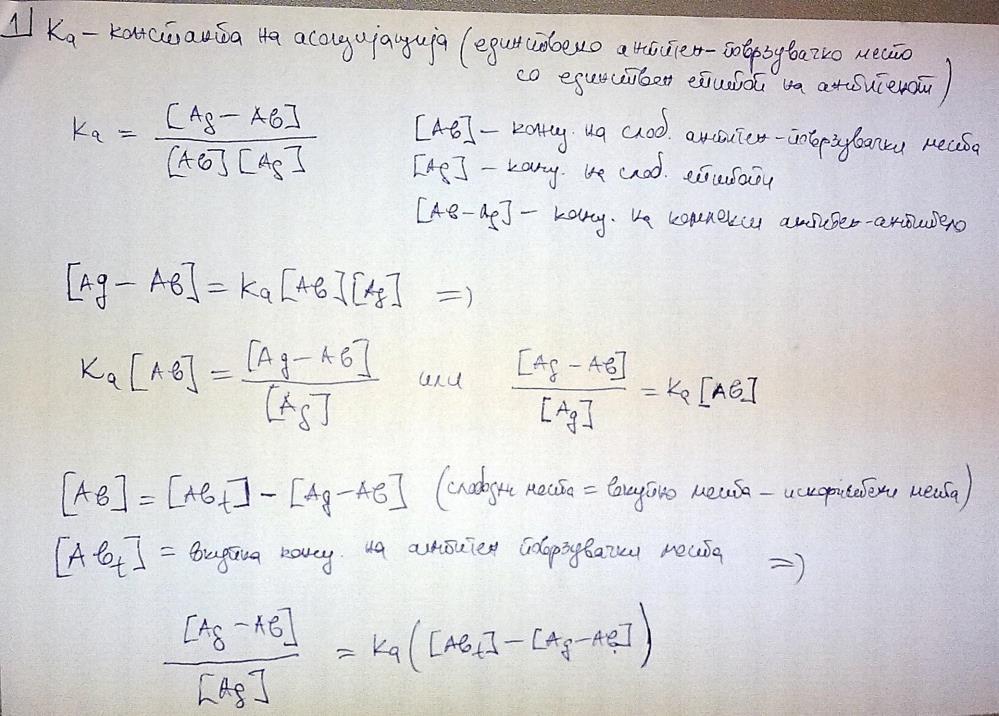 1] Ka – константа на асоцијација (единствено антиген-поврзувачко место
со единствен епитоп на антигенот)
Ka = [Ag – Ab] / [Ab] [Ag]
[Ab] – конц. на слоб. антиген-поврзувачки места
[Ag] – конц. на слоб. епитопи
[Ab-Ag] – конц. на комплекси антиген-антитело
[Ag – Ab] = Ka [Ab] [Ag] =>
Ka [Ab] = [Ag – Ab] / [Ag] или [Ag – Ab] / [Ag] = Ka [Ab]
[Ab] = [Abt] – [Ag-Ab] (слободни места = вкупно места – искористени места)
[Abt] = вкупна конц. на антиген поврзувачки места =>
[Ag – Ab] / [Ag] = Ka ([Abt] – [Ag-Ab])